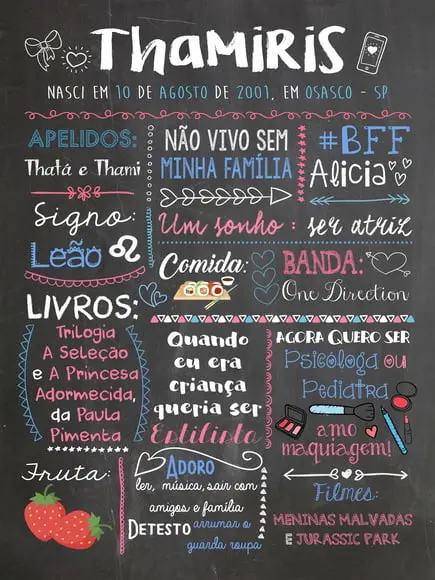 Thamiris
NASCI EM 10 DE AGOSTO DE 2001, EM OSASCO - SP
APELIDOS:
Thatá e Thami
NÃO VIVO SEM
MINHA FAMÍLIA
#BFF
Alicia
Signo:
Leão
Um sonho: ser atriz
Comida:
BANDA:
One Direction
LIVROS:
Trilogia
A Seleção
e A Princesa
Adormecida,
da Paula
Pimenta
Quando
eu era
criança
queria ser
Estilista
AGORA QUERO SER
Psicóloga ou
Pediatra
amo
maquiagem!
Fruta:
ADORO
ler, música, sair com
amigos e família
DETESTO arrumar o
guarda roupa
Filmes:
MENINAS MALVADAS
E JURASSIC PARK